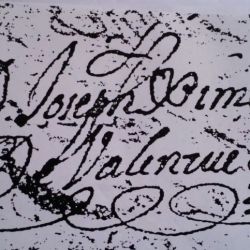 D. Joseph Xim
De Valenzue